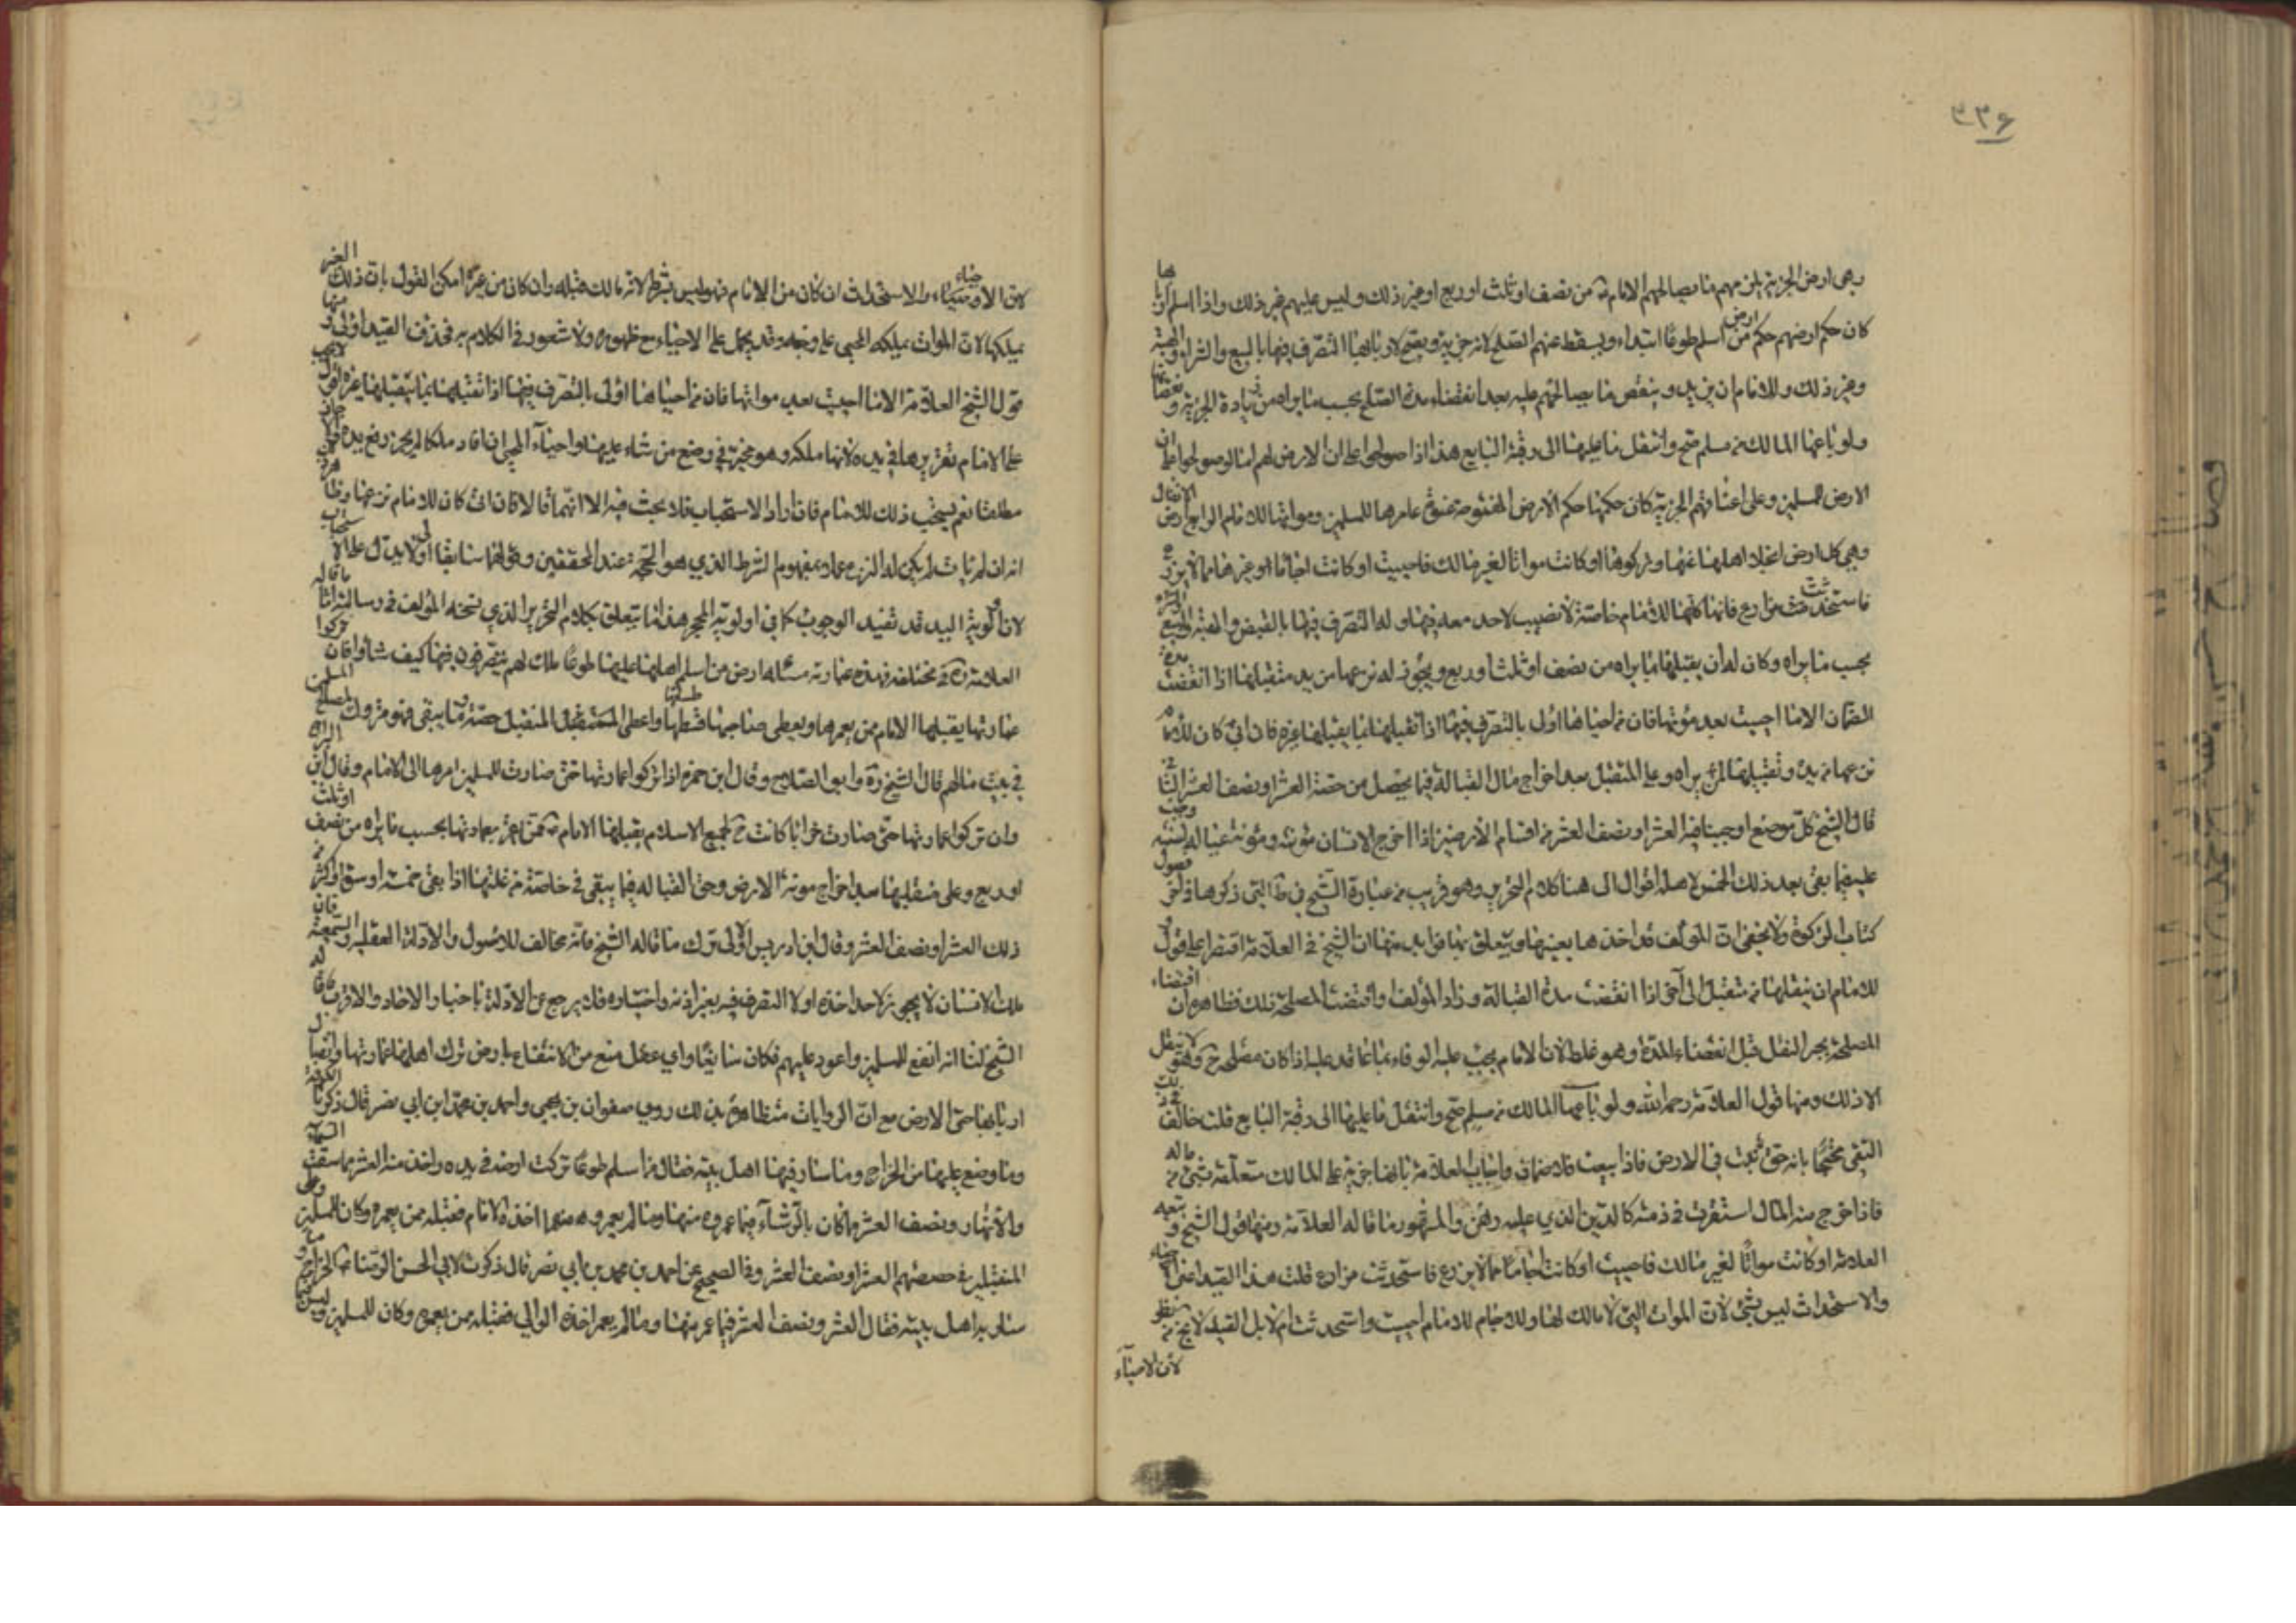 ٣٣۶
وهي ارض الجزية يلزمهم ما يصالحهم الامام من نصف او ثلث او ربع او غير ذلك وليس عليهم غير ذلك واذا اسلم اربابها
كان حكم ارضهم حكم ارض من اسلم طوعا ابتداء ويسقط عنهم الصلح لانه جزية ويصح لاربابها التصرف فيها بالبيع والشراء والهبة
وغير ذلك وللامام ان يزيد وينقص ما يصالحهم عليه بعد انقضاء مدة الصلح بحسب ما يراه من زيادة الجزية ونقصانها
ولو باعها المالك من مسلم صح وانتقل ما عليها الى رقبة البايع هذا اذا صولحوا على ان الارض لهم اما لو صولحوا على ان
الارض للمسلمين وعلى اعناقهم الجزية كان حكمها حكم الارض المفتوحة عنوة عامرها للمسلمين ومواتها للامام الرابع ارض الانفال
وهي كل ارض انجلا اهلها عنها وتركوها او كانت مواتا لغير مالك فاحييت او كانت اجاما او غيرها مما لا يزرع
فاستحدثت مزارع فانها كلها للامام خاصة لا نصيب لاحد معه فيها وله التصرف فيها بالقبض والهبة والبيع والشراء
بحسب ما يراه وكان له ان يقبلها بما يراه من نصف او ثلث او ربع ويجوز له نزعها من يد متقبلها اذا انقضت مدة
الضمان الا ما احييت بعد موتها فان من احياها اولى بالتصرف فيها اذا تقبلها بما يقبلها غيره فان ابى كان للامام
نزعها من يده وتقبيلها لمن يراه وعلى المتقبل بعد اخراج مال القبالة فيما يحصل من حصته العشر او نصف العشر الثاني
قال الشيخ كل موضع اوجبنا فيه العشر او نصف العشر من اقسام الارضين اذا اخرج الانسان مؤنته ومؤنة عياله لسنته وجب
عليه فيما بقى بعد ذلك الخمس لاهله اقول الى هنا كلام التحرير وهو قريب من عبارة الشيخ في التي ذكرها في آخر فصول
كتاب الزكوة ولا يخفى ان المؤلف قد اخذها بعينها ويتعلق بها فوايد منها ان الشيخ و العلامة اقتصرا على قول و
للامام ان ينقلها من متقبل الى آخر اذا انقضت مدة القبالة وزاد المؤلف او اقتضت المصلحة ذلك فظاهره ان اقتضاء
المصلحة يجوز النقل قبل انقضاء المدة وهو غلط لان الامام يجب عليه الوفاء بما عاقد عليه اذا كان مصلحة وهو لا ينقل
الا ذلك ومنها قول العلامة رحمه الله ولو باعها المالك من مسلم صح وانتقل ما عليها الى رقبة البايع قلت خالف
التقي محتجا بانه حق ثبت في الارض فاذا بيعت فلا ضمان واجاب العلامة بانها جزية على المالك متعلقة بشئ من ماله
فاذا خرج منه المال استقرت في ذمته كالدين الذي عليه رهن والمشهور ما قاله العلامة ومنها قول الشيخ وتبعه
العلامة او كانت مواتا لغير مالك فاحييت او كانت اجاما مما لا يزرع فاستحدثت مزارع قلت هذا القيد اعني الاحياء
والاستحداث ليس بشئ لان الموات التي لا مالك لها والاجام للامام احييت واستحدثت ام لا بل القيد
لان الاحياء
لان الاحياء والاستحداث ان كان من الامام فهو ليس بشرط لانه مالك قبله وان كان من غيره امكن القول بان ذلك الغير
يملكها لان الموات يملكه المحيي على وجه وقد يحمل على الاحياء مع ظهوره ولا شعور في الكلام به فحذف القيد اولى ومنها
قول الشيخ العلامة الا ما احييت بعد مواتها فان من احياها اولى بالتصرف فيها اذا تقبلها بما يتقبلها غيره
على الامام تقريرها في يده لانها ملكه وهو مخير في وضع من شاء عليها واحياء المحيي ان افاد ملكا لم يجز رفع يده
مطلقا نعم يستحب ذلك للامام فان اراد الاستحباب فلا بحث فيه الا انهما قالا فان ابى كان للامام نزعها
انه ان لم يأب لم يكن له النزع عملا بمفهوم الشرط الذي هو الحجة عند المحققين وقولهما سابقا اولى لا يدل على الاستحباب
لان اولوية اليد قد تفيد الوجوب كما في اولوية المحجر هذا ما يتعلق بكلام التحرير الذي نسخه المؤلف في رسالته
العلامة في المختلف فهذه عبارته مسئلة ارض من اسلم اهلها عليها طوعا ملك لهم يتصرفون فيها كيف شاؤا فان تركوا
عمارتها يقبلها الامام ممن يعمرها ويعطى صاحبها طسقها واعطى المتقبل حصته وما يبقى فهو متروك لمصالح المسلمين
في بيت مالهم قال الشيخ ره وابو الصلاح وقال ابن حمزة اذا تركوا عمارتها حتى صارت للمسلمين امرها الى الامام وقال ابن البراج
وان تركوا عمارتها حتى صارت خرابا كانت لجميع الاسلام يقبلها الامام ممن يقوم بعمارتها بحسب ما يراه من نصف او ثلث
او ربع وعلى متقبلها بعد اخراج مونة الارض وحق القبالة فيما يبقى في خاصته من غلتها اذا بقى خمسة اوسق او اكثر من
ذلك العشر او نصف العشر وقال ابن ادريس الاولى ترك ما قاله الشيخ فانه مخالف للاصول والادلة العقلية والسمعية فان
ملك الانسان لا يجوز لاحد اخذه ولا التصرف فيه بغير اذنه واختياره فلا يرجع عن الادلة باخبار الاحاد والاقرب ما قاله
الشيخ لنا انه انفع للمسلمين واعود عليهم فكان سائغا واي عقل منع من الانتفاع بارض ترك اهلها عمارتها وايصال
اربابها حق الارض مع ان الروايات متظاهرة بذلك روى صفوان بن يحيى واحمد بن محمد ابن ابي نصر قال ذكرنا له الكوفة
وما وضع عليها من الخراج وما سار فيها اهل بيته فقال من اسلم طوعا تركت ارضه في يده واخذ منه العشر مما سقت السماء
والانهار ونصف العشر مما كان بالرشاء فيما عمروه منها وما لم يعمروه منها اخذه الامام فقبله ممن يعمره وكان للمسلمين وعلى
المتقبلين في حصصهم العشر او نصف العشر وفي الصحيح عن احمد بن محمد بن ابي نصر قال ذكرت لابي الحسن الرضا الخراج وما
سار به اهل بيته فقال العشر ونصف العشر فيما عمر منها وما لم يعمر اخذه الوالي فقبله ممن يعمره وكان للمسلمين وليس